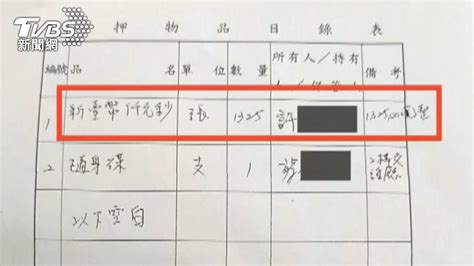 TVBS
新聞網
押物品目錄表
編號 品名 單位 數量 所有人/持有人/保管人 備考
1 新臺幣仟元鈔 張 1325 許
2 隨身碟 支 1
以下空白